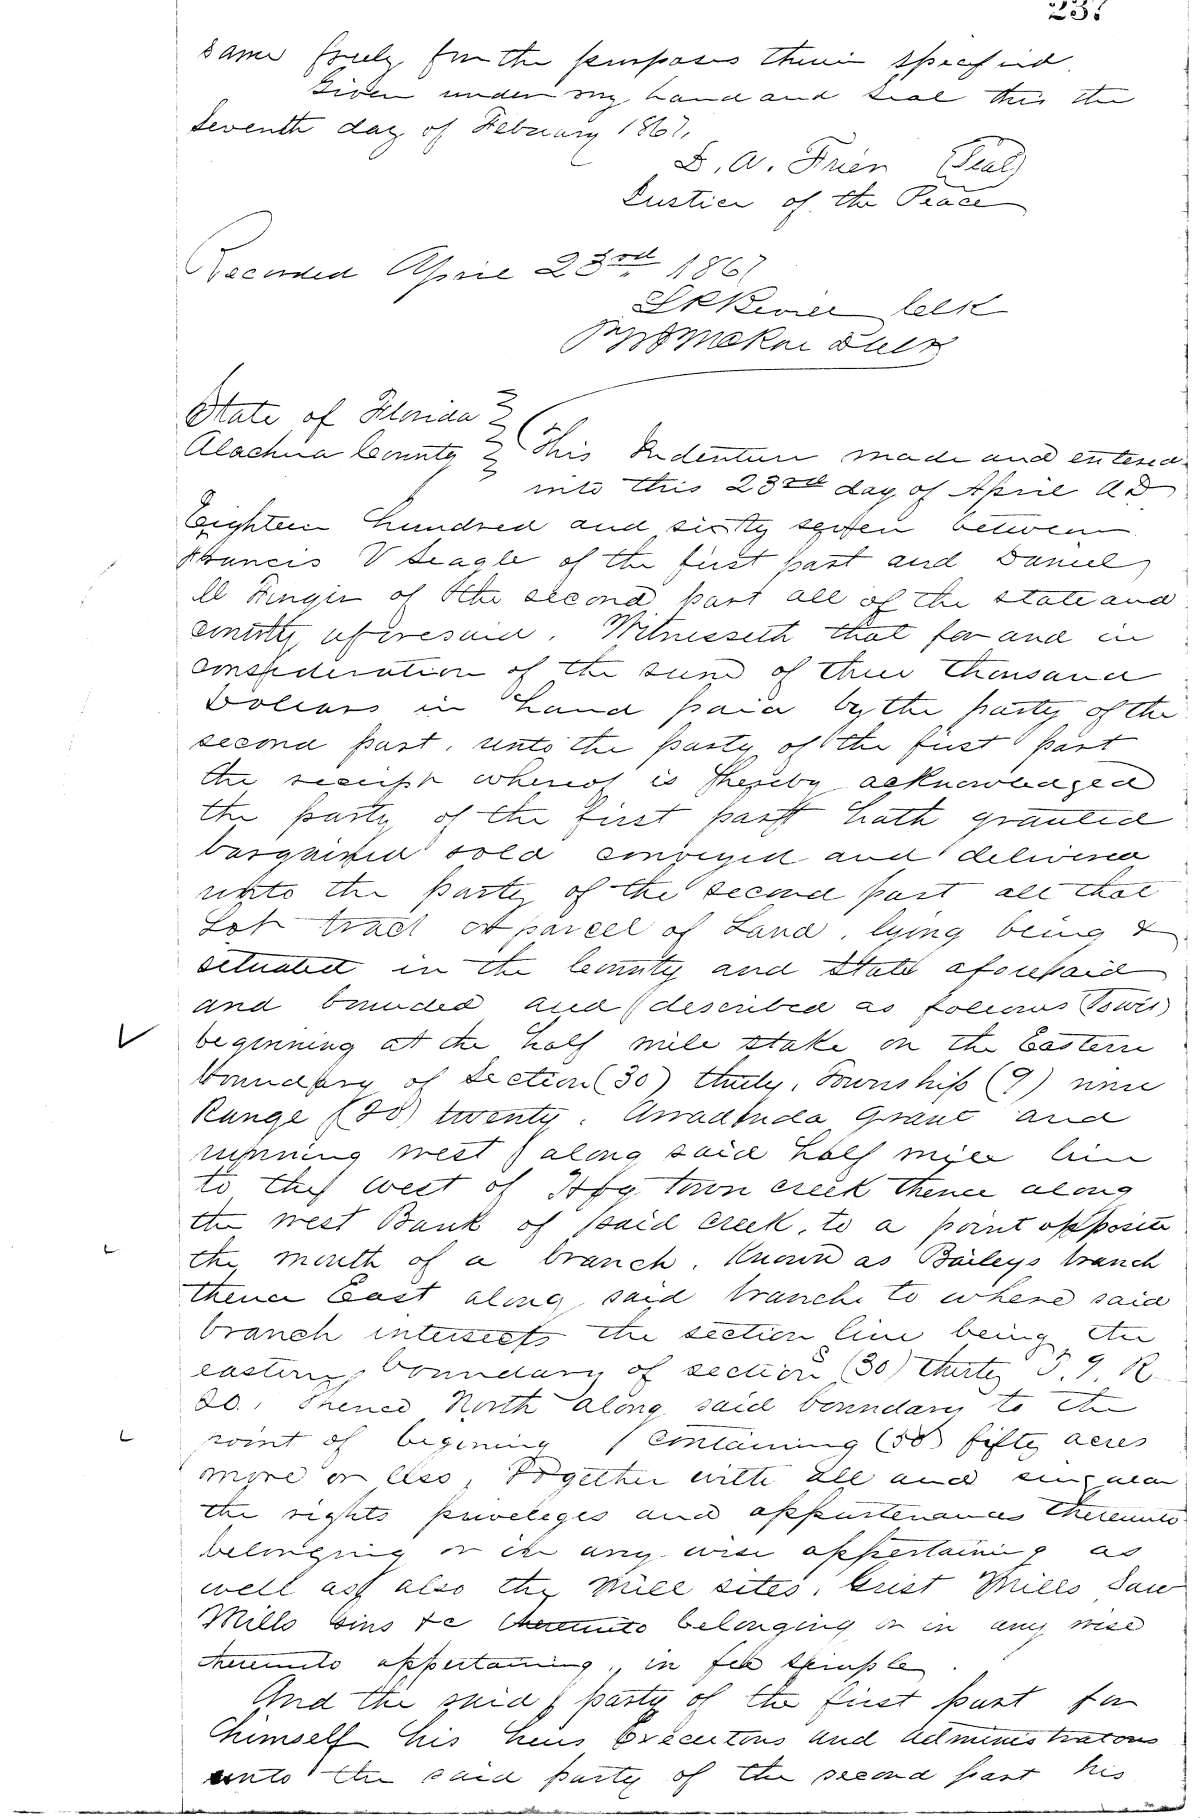 237
same freely for the purposes therein specified.
Given under my hand and seal this the
Seventh day of February 1867.
D. A. Frier (Seal)
Justice of the Peace
Recorded April 23rd 1867
Clk
State of Florida
Alachua County This Indenture made and entered
into this 23rd day of April AD
Eighteen hundred and sixty seven between
Francis V Seagle of the first part and Daniel
of the second part all of the state and
county aforesaid. Witnesseth that for and in
consideration of the sum of three thousand
Dollars in hand paid by the party of the
second part, unto the party of the first part
the receipt whereof is hereby acknowledged
the party of the first part hath granted
bargained sold conveyed and delivered
unto the party of the second part all that
Lot tract or parcel of Land, lying being &
situated in the County and State aforesaid
and bounded and described as follows Towit
beginning at the half mile stake on the Eastern
boundary of Section (30) thirty, Township (9) nine
Range (20) twenty. Arradonda Grant and
running west along said half mile line
to the west of Hog town creek thence along
the West Bank of said creek, to a point opposite
the mouth of a branch, Known as Baileys branch
thence East along said branch to where said
branch intersects the section line being the
eastern boundary of section (30) thirty T. 9. R
20., Thence North along said boundary to the
point of begining containing (50) fifty acres
more or less, Together with all and singular
the rights priveleges and appurtenances thereunto
belonging or in any wise appertaining as
well as also the Mill sites, Grist Mills Saw
Mills Gins &c thereunto belonging or in any wise
thereunto appertaining, in fee simple.
And the said party of the first part for
himself his heirs Executors and administrators
unto the said party of the second part his